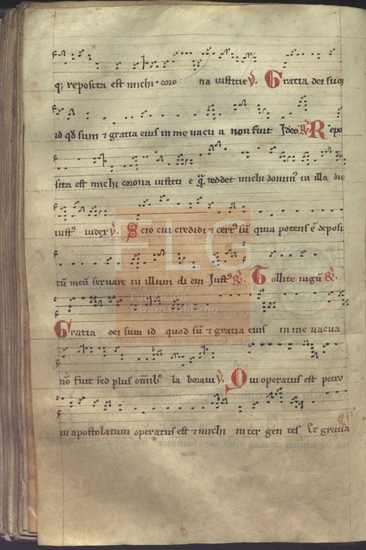 q; reposita est michi coro na iustitie ℣. Gratia dei sum
id qd sum ⁊ gratia eius in me vacu a non fuit Ideo ℟. Repo
sita est michi corona iustiti e qͣ reddet michi dominꝰ in illa die
iustꝰ iudex ℣. Scio cui credidi ⁊ certꝰ sū quia potens ē deposi
tū meū servare in illum di em Iustꝰ ℟. Tollite iugū ℟.
Gratia dei sum id quod sū ⁊ gratia eius in me vacua
nō fuit sed plus omībꝰ la boravi ℣. Qui operatus est petro
in apostolatum operatus est ⁊ michi inter gen tes Et gratia
FLG